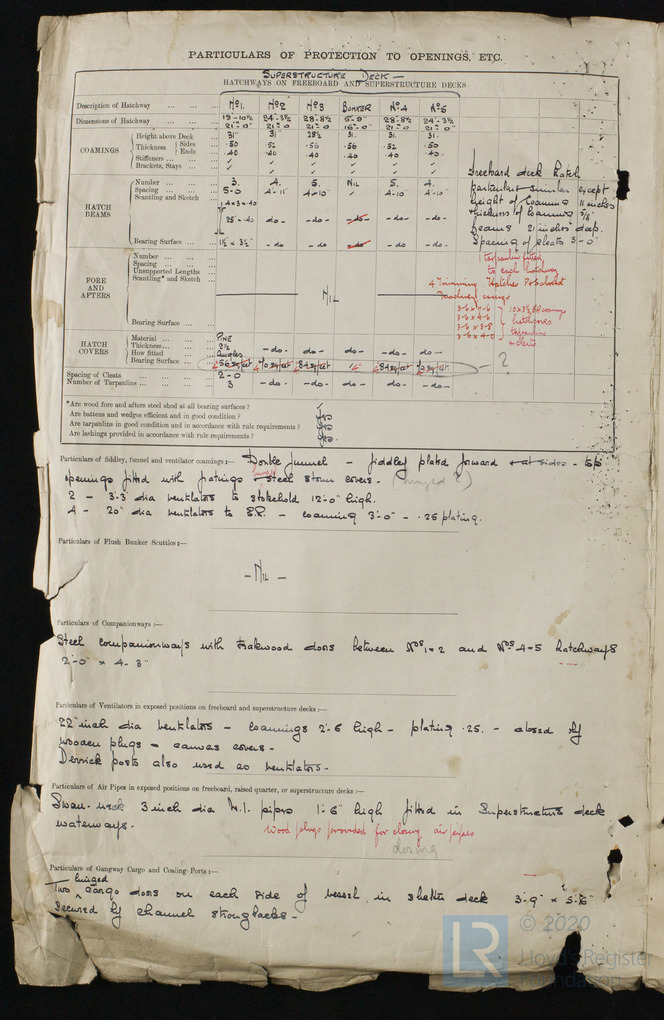 PARTICULARS OF PROTECTION TO OPENINGS, ETC.
SUPERSTRUCTURE DECK —
HATCHWAYS ON FREEBOARD AND SUPERSTRUCTURE DECKS
Description of Hatchway ... Nº1. Nº2 Nº3 BUNKER Nº4 Nº5
Dimensions of Hatchway ... 19'-10½" 24'-3½" 28'-8½ 5'-9" 28'-8½ 24'-3½
21'-0" 21'-0 21'-0 16'-0" 21'-0 21'-0"
COAMINGS Height above Deck 31" 31" 28½ 31. 31. 31.
Thickness Sides .50 .52 .56 .56 .52 .50
Ends .40 .40 .40 .40 .40 .40.
Stiffeners ... ✓ ✓ ✓ ✓ ✓ ✓
Brackets, Stays ... ✓ ✓ ✓ ✓ ✓ ✓
HATCH BEAMS Number ... 3. 4. 5. NIL 5. 4.
Spacing ... 5-0 4-11" 4-10" 4-10" 4-10"
Scantling and Sketch ... 4×3×.40
25"×.40 -do- -do- -do- -do- -do-
Bearing Surface ... 1½"× 3½" -do -do -do -do -do
Freeboard deck hatch
particulars similar except
height of Coaming 11 inches
thickness of Coaming 3/8"
beams 21 inches deep.
Spacing of cleats 3-0"
FORE AND AFTERS Number ...
Spacing ...
Unsupported Lengths
Scantling* and Sketch ...
NIL
Bearing Surface ...
1 tarpaulin fitted
to each hatchway
4 Trimming Hatches Freeboard
Machinery casings
3-6×7-6
3-6×4-6
3-6×3-8
3-6×4-0
10×3½ BA coamings
hatchcovers
tarpaulins
& cleats
HATCH COVERS Material ... PINE
Thickness ... 2½ -do- do- do- do- do-
How fitted ... Angles
Bearing Surface ... — ?
Spacing of Cleats ... 2-0"
Number of Tarpaulins ... 3 -do- -do- do- do- do-
*Are wood fore and afters steel shod at all bearing surfaces? ✓
Are battens and wedges efficient and in good condition? Yes
Are tarpaulins in good condition and in accordance with rule requirements? Yes
Are lashings provided in accordance with rule requirements? Yes.
Particulars of fiddley, funnel and ventilator coamings:— Double funnel — fiddley plated forward + at sides — top
openings fitted with gratings hinged steel storm covers. (hinged?)
2 — 3'-3" dia ventilators to stokehold 12'-0" high.
4 — 20" dia ventilators to E.R. — coaming 3'-0" — .26 plating.
Particulars of Flush Bunker Scuttles:—
— NIL —
Particulars of Companionways:—
Steel companionways with teakwood doors between Nºs 1 & 2 and Nºs 4 & 5 hatchways
2'-0" × 4'-3"
Particulars of Ventilators in exposed positions on freeboard and superstructure decks:—
22 inch dia ventilators — coamings 2'-6 high — plating .25. — closed by
wooden plugs & canvas covers —
Derrick posts also used as ventilators —
Particulars of Air Pipes in exposed positions on freeboard, raised quarter, or superstructure decks:—
Swan-neck 3 inch dia W.I. pipes 1'-6" high fitted in superstructure deck
waterways. wood plugs provided for closing air pipes
closing
Particulars of Gangway Cargo and Coaling Ports:—
Two hinged cargo doors on each side of vessel, in shelter deck 3'-9" × 5'-6"
Secured by channel strongbacks —
© 2020
LR Lloyd's Register
Foundation